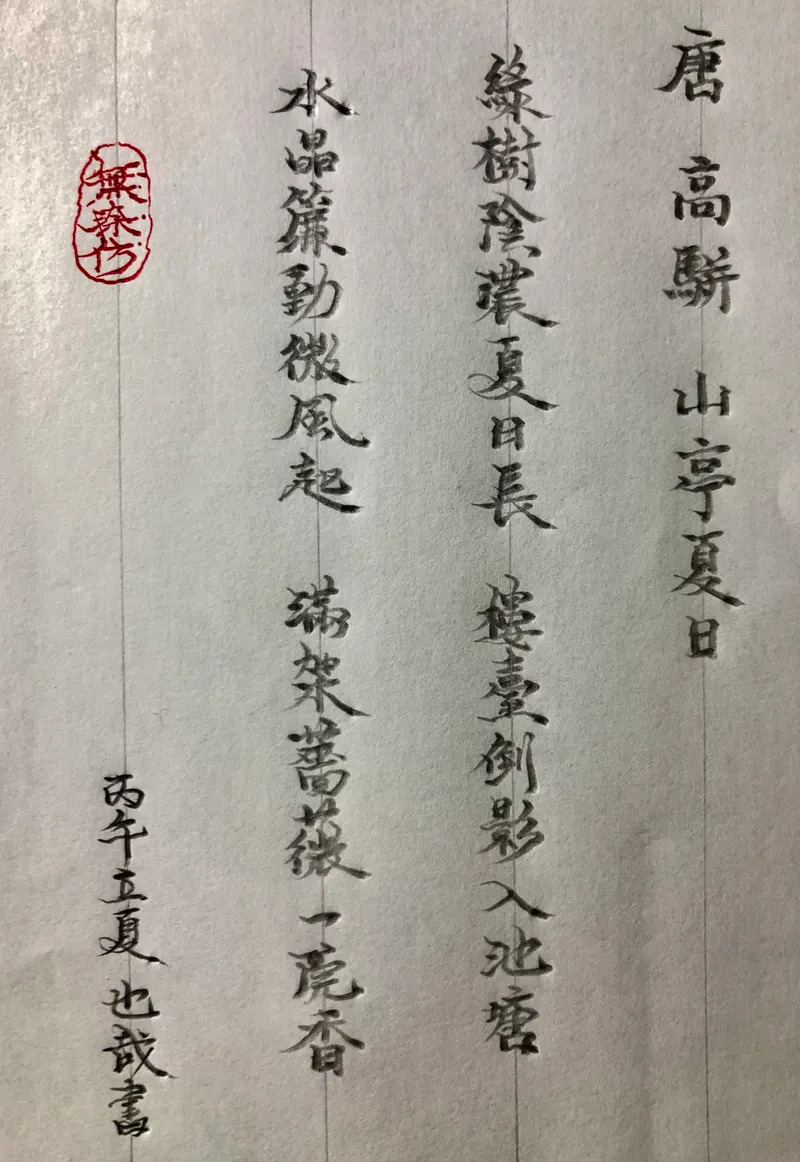 唐 高駢 山亭夏日
綠樹陰濃夏日長 樓臺倒影入池塘
水晶簾動微風起 滿架薔薇一院香
丙午立夏 也哉書
無染坊